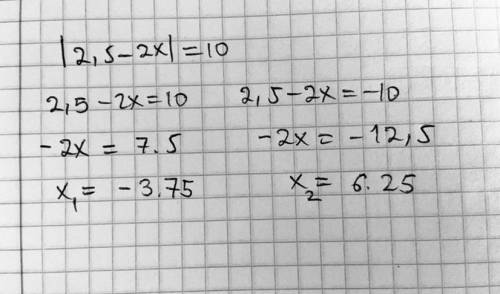 |2,5-2x|=10
2,5-2x=10 2,5-2x=-10
-2x = 7.5 -2x = -12,5
x₁= -3.75 x₂= 6.25